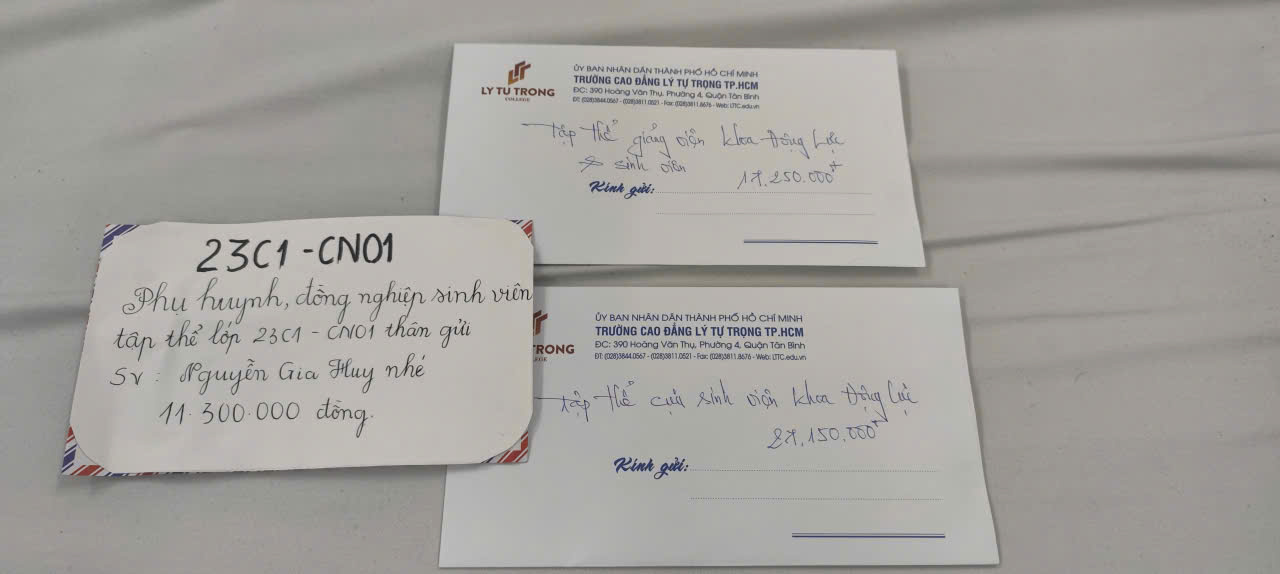 LY TU TRONG
COLLEGE
ỦY BAN NHÂN DÂN THÀNH PHỐ HỒ CHÍ MINH
TRƯỜNG CAO ĐẲNG LÝ TỰ TRỌNG TP.HCM
ĐC: 390 Hoàng Văn Thụ, Phường 4, Quận Tân Bình
ĐT: (028)3844.0567 - (028)3811.0521 - Fax: (028)3811.8676 - Web: LTTC.edu.vn
Tập thể giảng viên khoa Động Lực
& sinh viên
17.250.000đ
Kính gửi:
23C1 - CN01
Phụ huynh, đồng nghiệp sinh viên
tập thể lớp 23C1 - CN01 thân gửi
SV : Nguyễn Gia Huy nhé
11.300.000 đồng.
TRONG
EGE
ỦY BAN NHÂN DÂN THÀNH PHỐ HỒ CHÍ MINH
TRƯỜNG CAO ĐẲNG LÝ TỰ TRỌNG TP.HCM
ĐC: 390 Hoàng Văn Thụ, Phường 4, Quận Tân Bình
ĐT: (028)3844.0567 - (028)3811.0521 - Fax: (028)3811.8676 - Web: LTTC.edu.vn
Tập thể cựu sinh viên khoa Động Lực
27.150.000đ
Kính gửi: